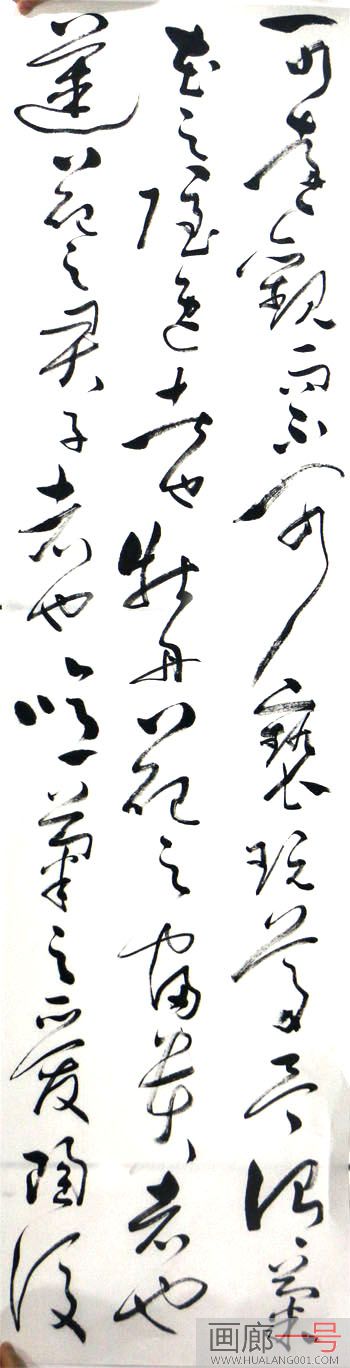 可遠觀而不可褻玩焉予謂菊
花之隱逸者也牡丹花之富貴者也
蓮花之君子者也噫菊之愛陶後
画廊一号
WWW.HUALANG001.COM